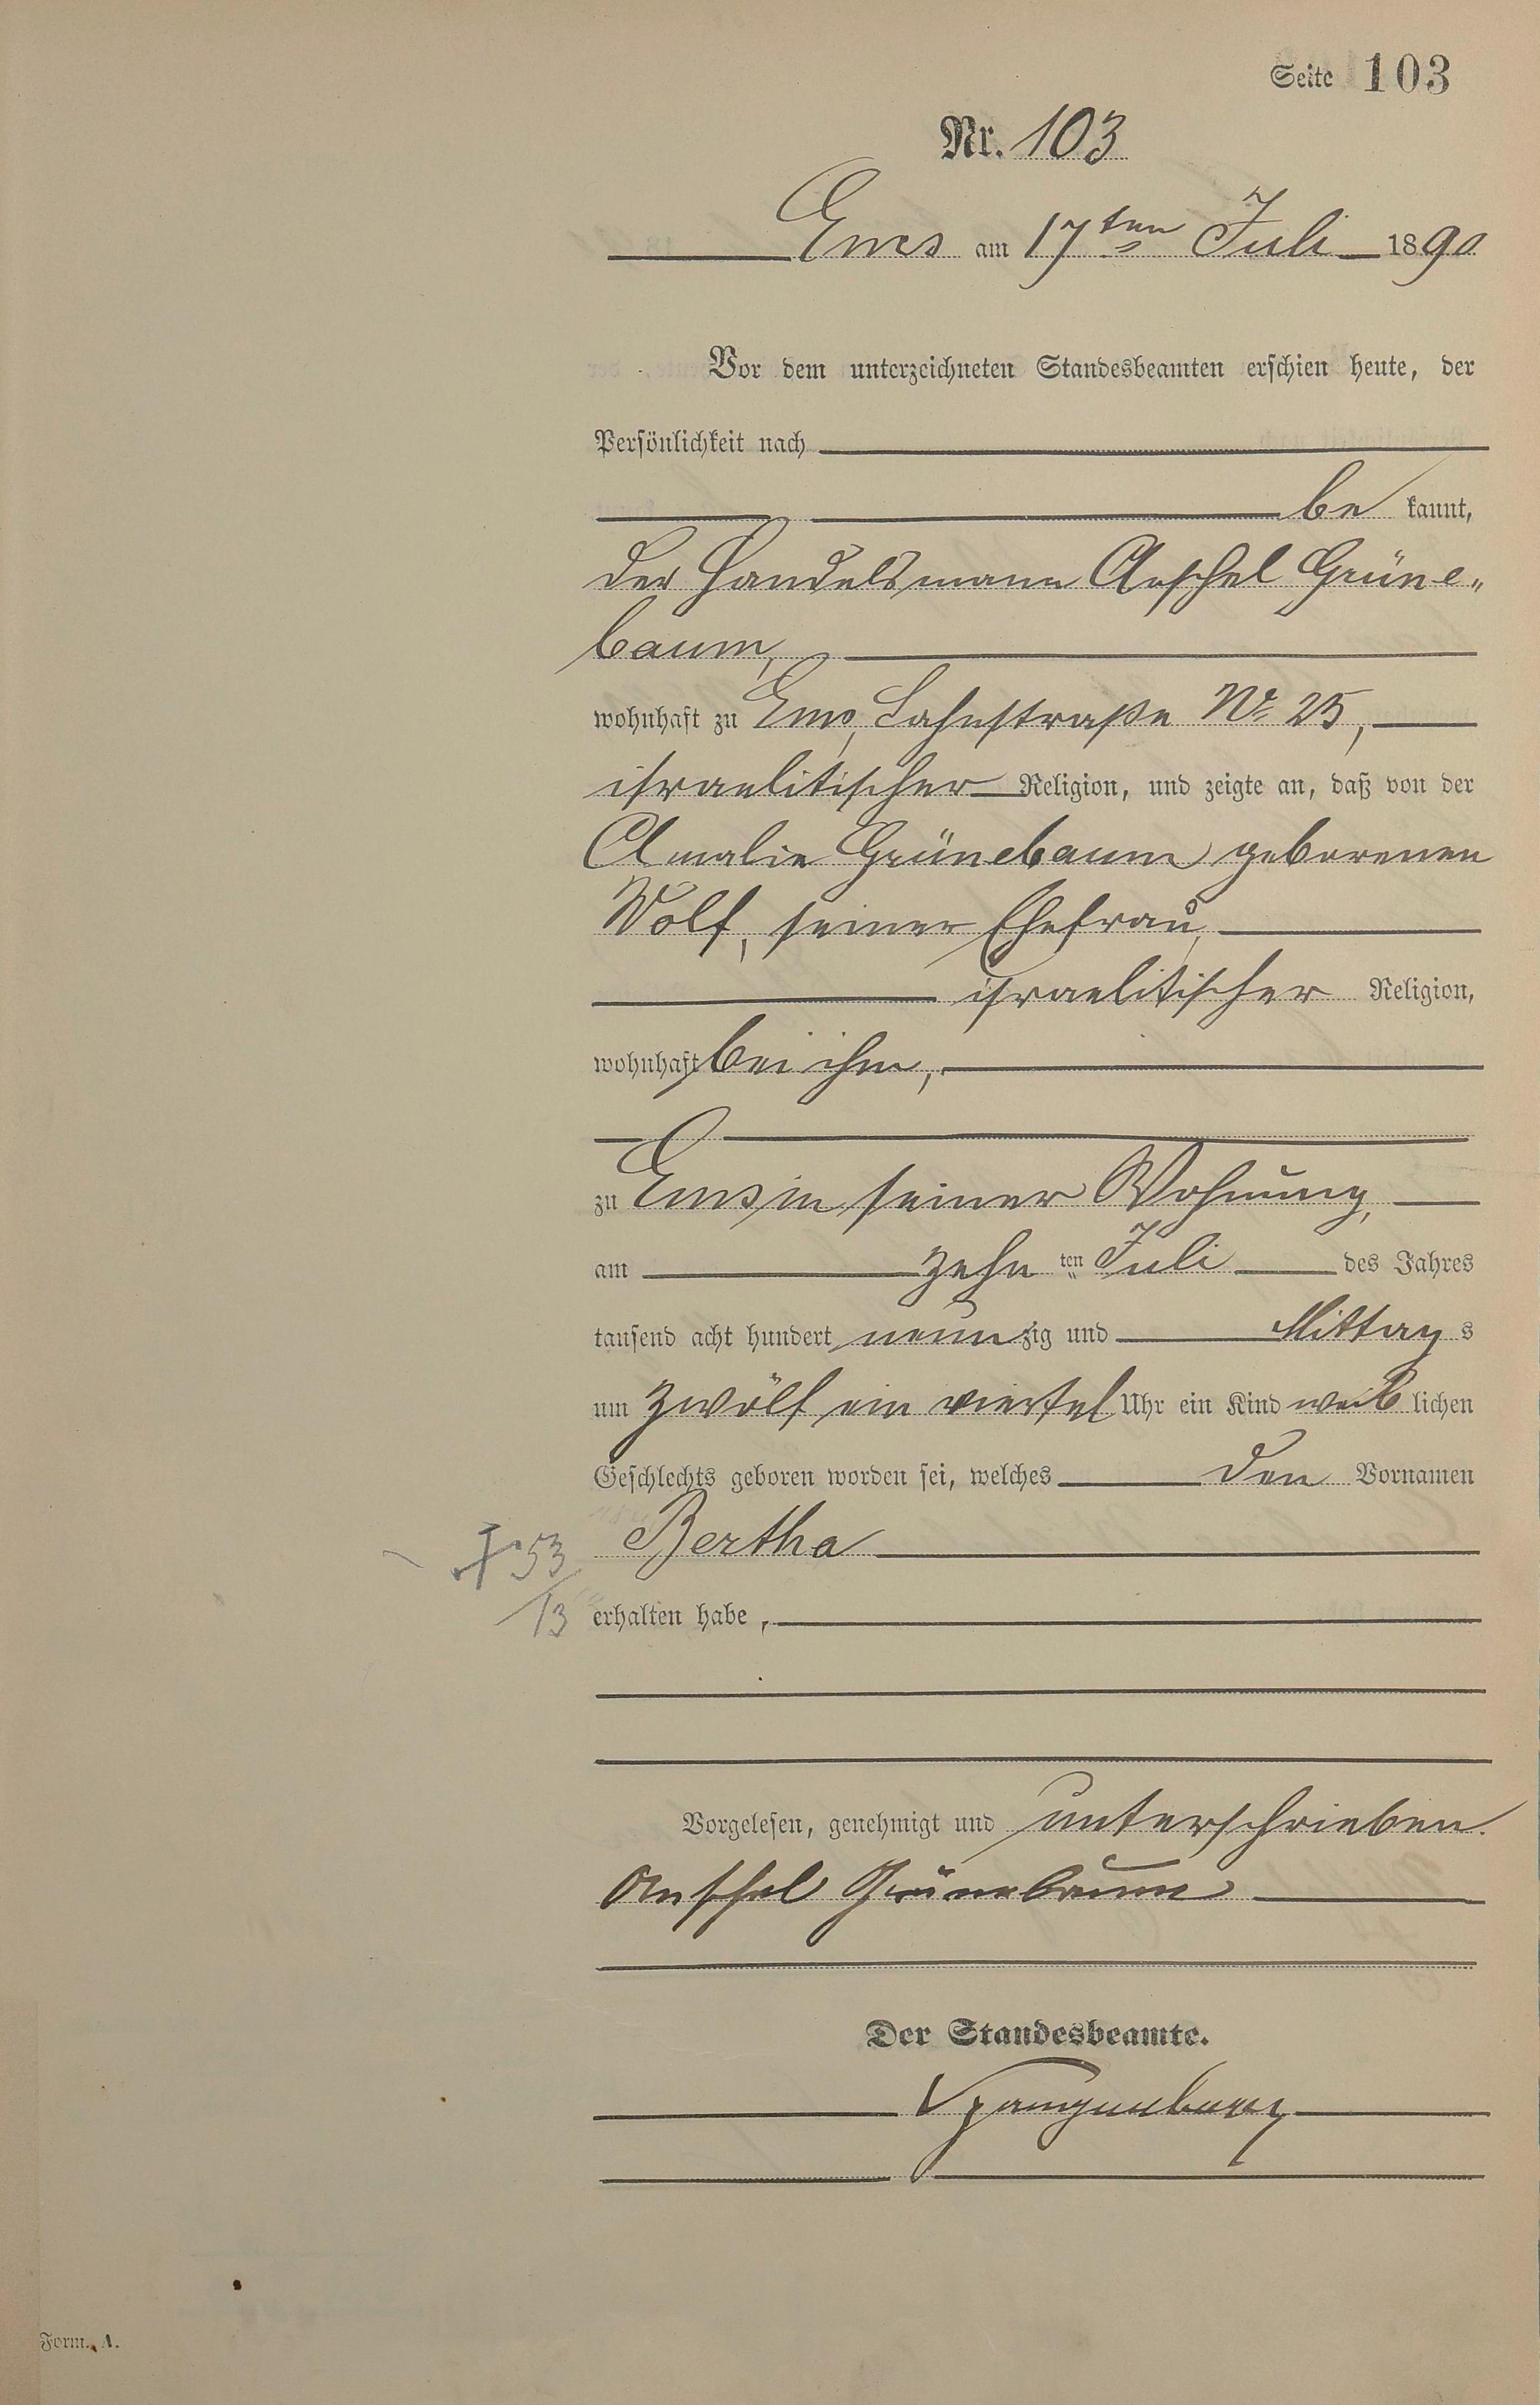 Seite 103
Nr. 103
Ems am 17ten Juli 1890
Vor dem unterzeichneten Standesbeamten erschien heute, der
Persönlichkeit nach
be kannt,
der Handelsmann Anschel Grüne„
baum,
wohnhaft zu Ems, Lahnstraße No 25,
israelitischer Religion, und zeigte an, daß von der
Amalie Grünebaum geborenen
Wolf, seiner Ehefrau,
israelitischer Religion,
wohnhaft bei ihm,
zu Ems in seiner Wohnung,
am zehn ten Juli des Jahres
tausend acht hundert neunzig und Mittags
um zwölf ein viertel Uhr ein Kind weiblichen
Geschlechts geboren worden sei, welches den Vornamen
Bertha
† 53/13
erhalten habe,
Vorgelesen, genehmigt und unterschrieben.
Anschel Grünebaum
Der Standesbeamte.
Spangenberg
Form. A.